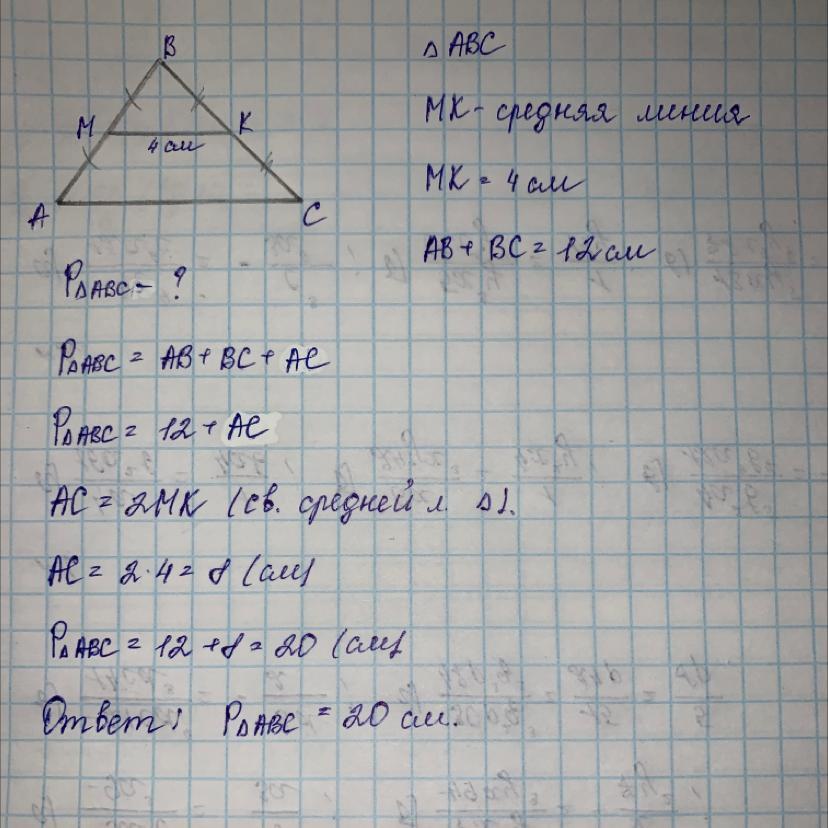 B
M
K
4 см
A
C
△ ABC
MK - средняя линия
MK = 4 см
AB + BC = 12 см
P△ABC - ?
P△ABC = AB + BC + AC
P△ABC = 12 + AC
AC = 2MK (св. средней л. △).
AC = 2·4 = 8 (см)
P△ABC = 12 + 8 = 20 (см)
Ответ: P△ABC = 20 см.